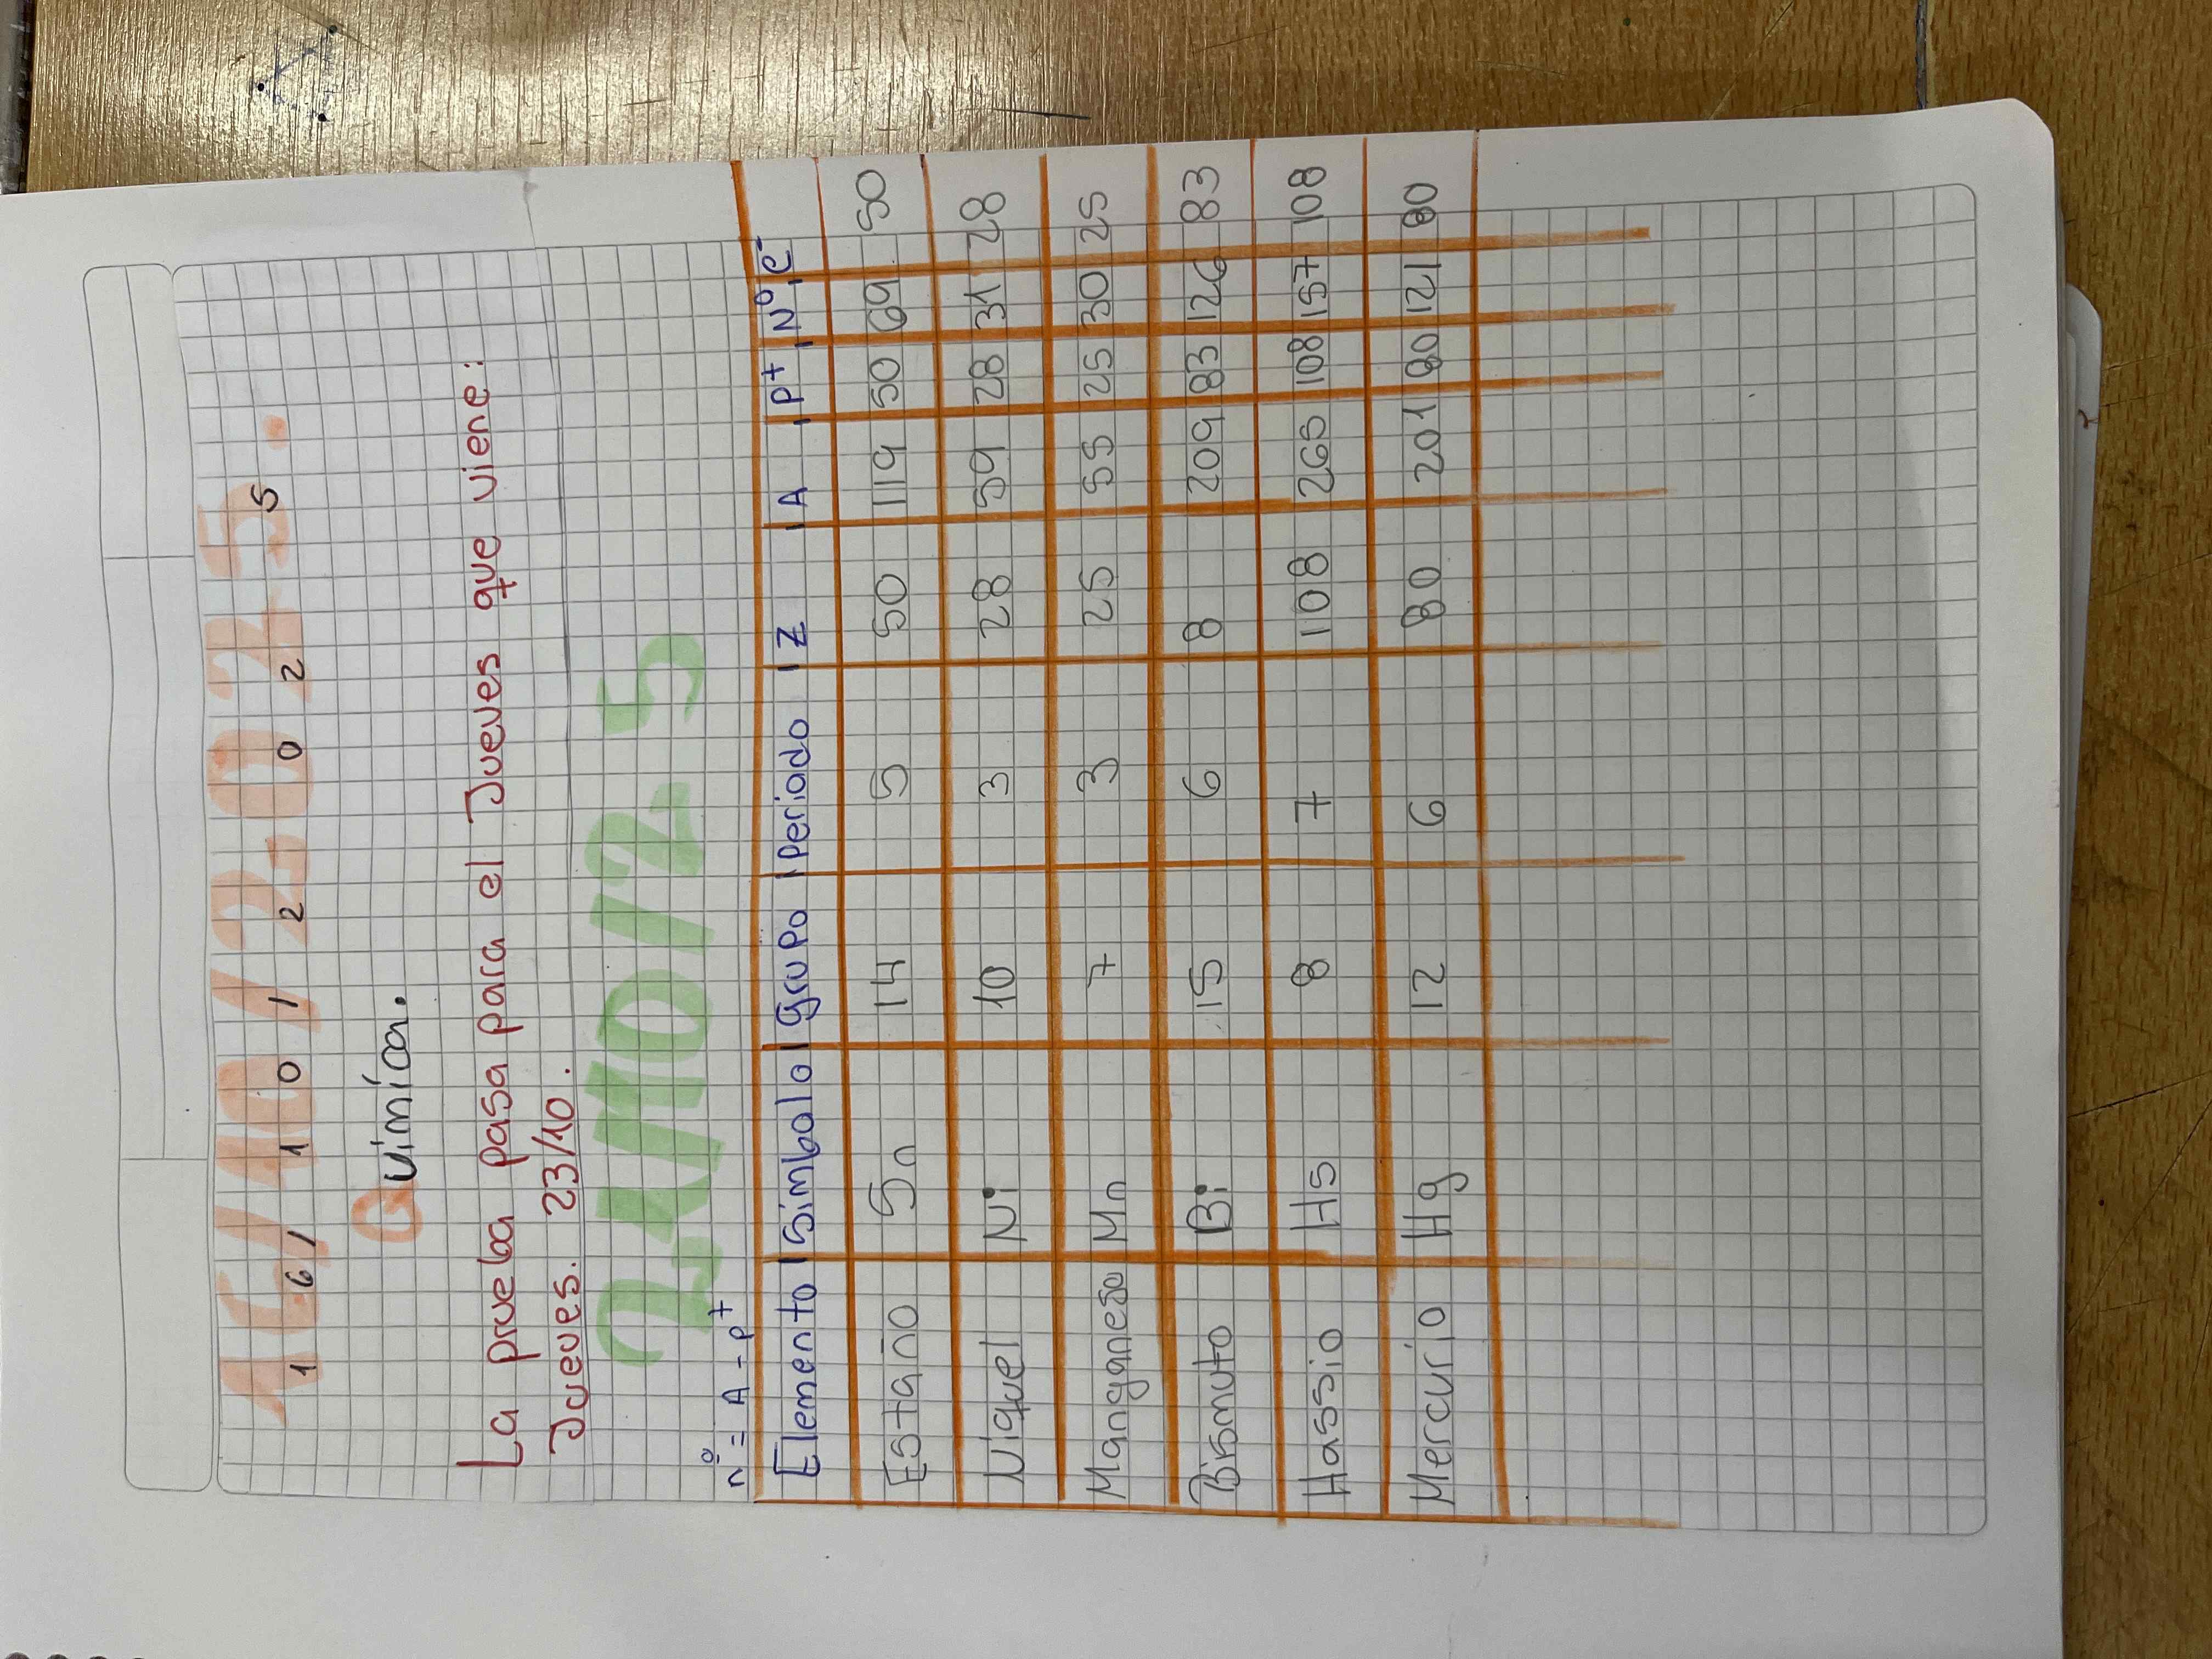 16/10/2025.
1 6 / 1 0 / 2 0 2 5
Química.
La prueba pasa para el Jueves que viene:
Jueves. 23/10.
21/10/25
n° = A - p+
Elemento | Simbolo | grupo | Periodo | Z | A | P+ | N° | e-
Estaño 5n 14 5 50 119 50 69 50
Niquel Ni 10 3 28 59 28 31 28
Manganeso Mn 7 3 25 55 25 30 25
Bismuto Bi 15 6 8 209 83 126 83
Hassio Hs 8 7 108 265 108 157 108
Mercurio Hg 12 6 80 201 80 121 80